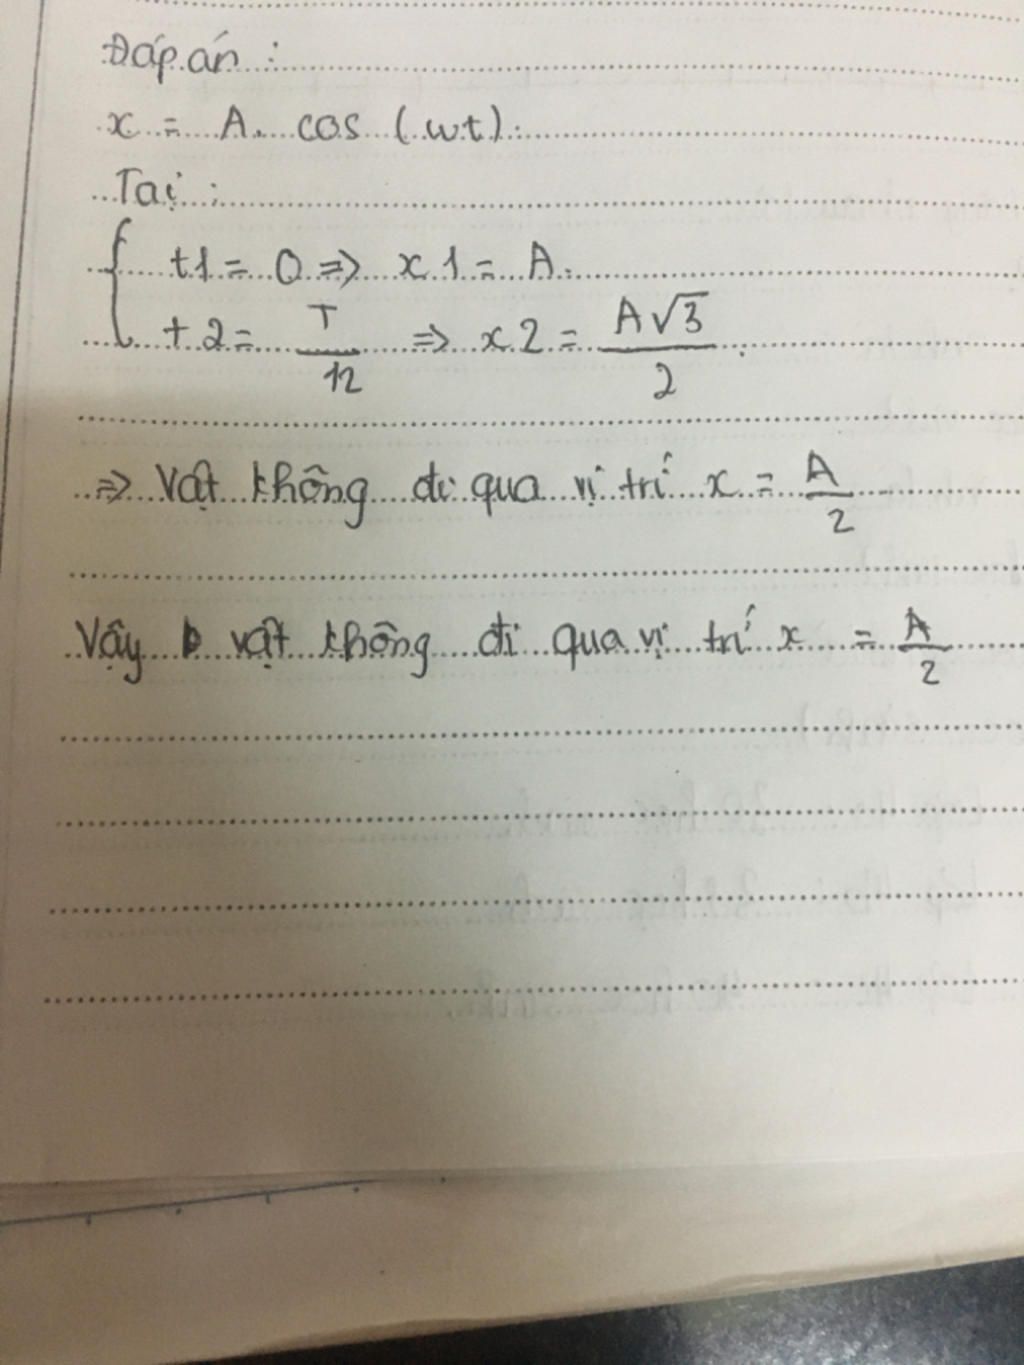 Đáp án :
x = A. cos (wt).
Tại :
{ t1 = 0 => x1 = A.
t2 = T/12 => x2 = A√3/2.
=> Vật không đi qua vị trí x = A/2
Vậy vật không đi qua vị trí x = A/2